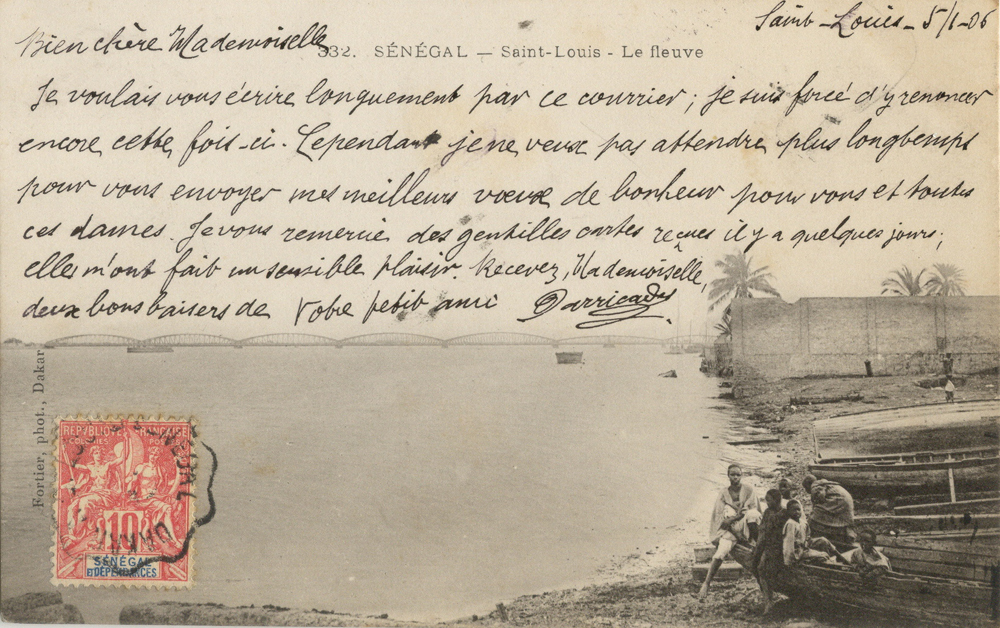 Saint-Louis - 5/1-06
Bien chère Mademoiselle
332. SÉNÉGAL — Saint-Louis - Le fleuve
Je voulais vous écrire longuement par ce courrier ; je suis forcé d'y renoncer
encore cette fois-ci. Cependant je ne veux pas attendre plus longtemps
pour vous envoyer mes meilleurs vœux de bonheur pour vous et toutes
ces dames. Je vous remercie des gentilles cartes reçues il y a quelques jours ;
elles m'ont fait un sensible plaisir. Recevez, Mademoiselle,
deux bons baisers de Votre petit ami Darricady
Fortier, phot., Dakar
RÉPUBLIQUE FRANÇAISE
COLONIES POSTES
10
SÉNÉGAL
ET DÉPENDANCES